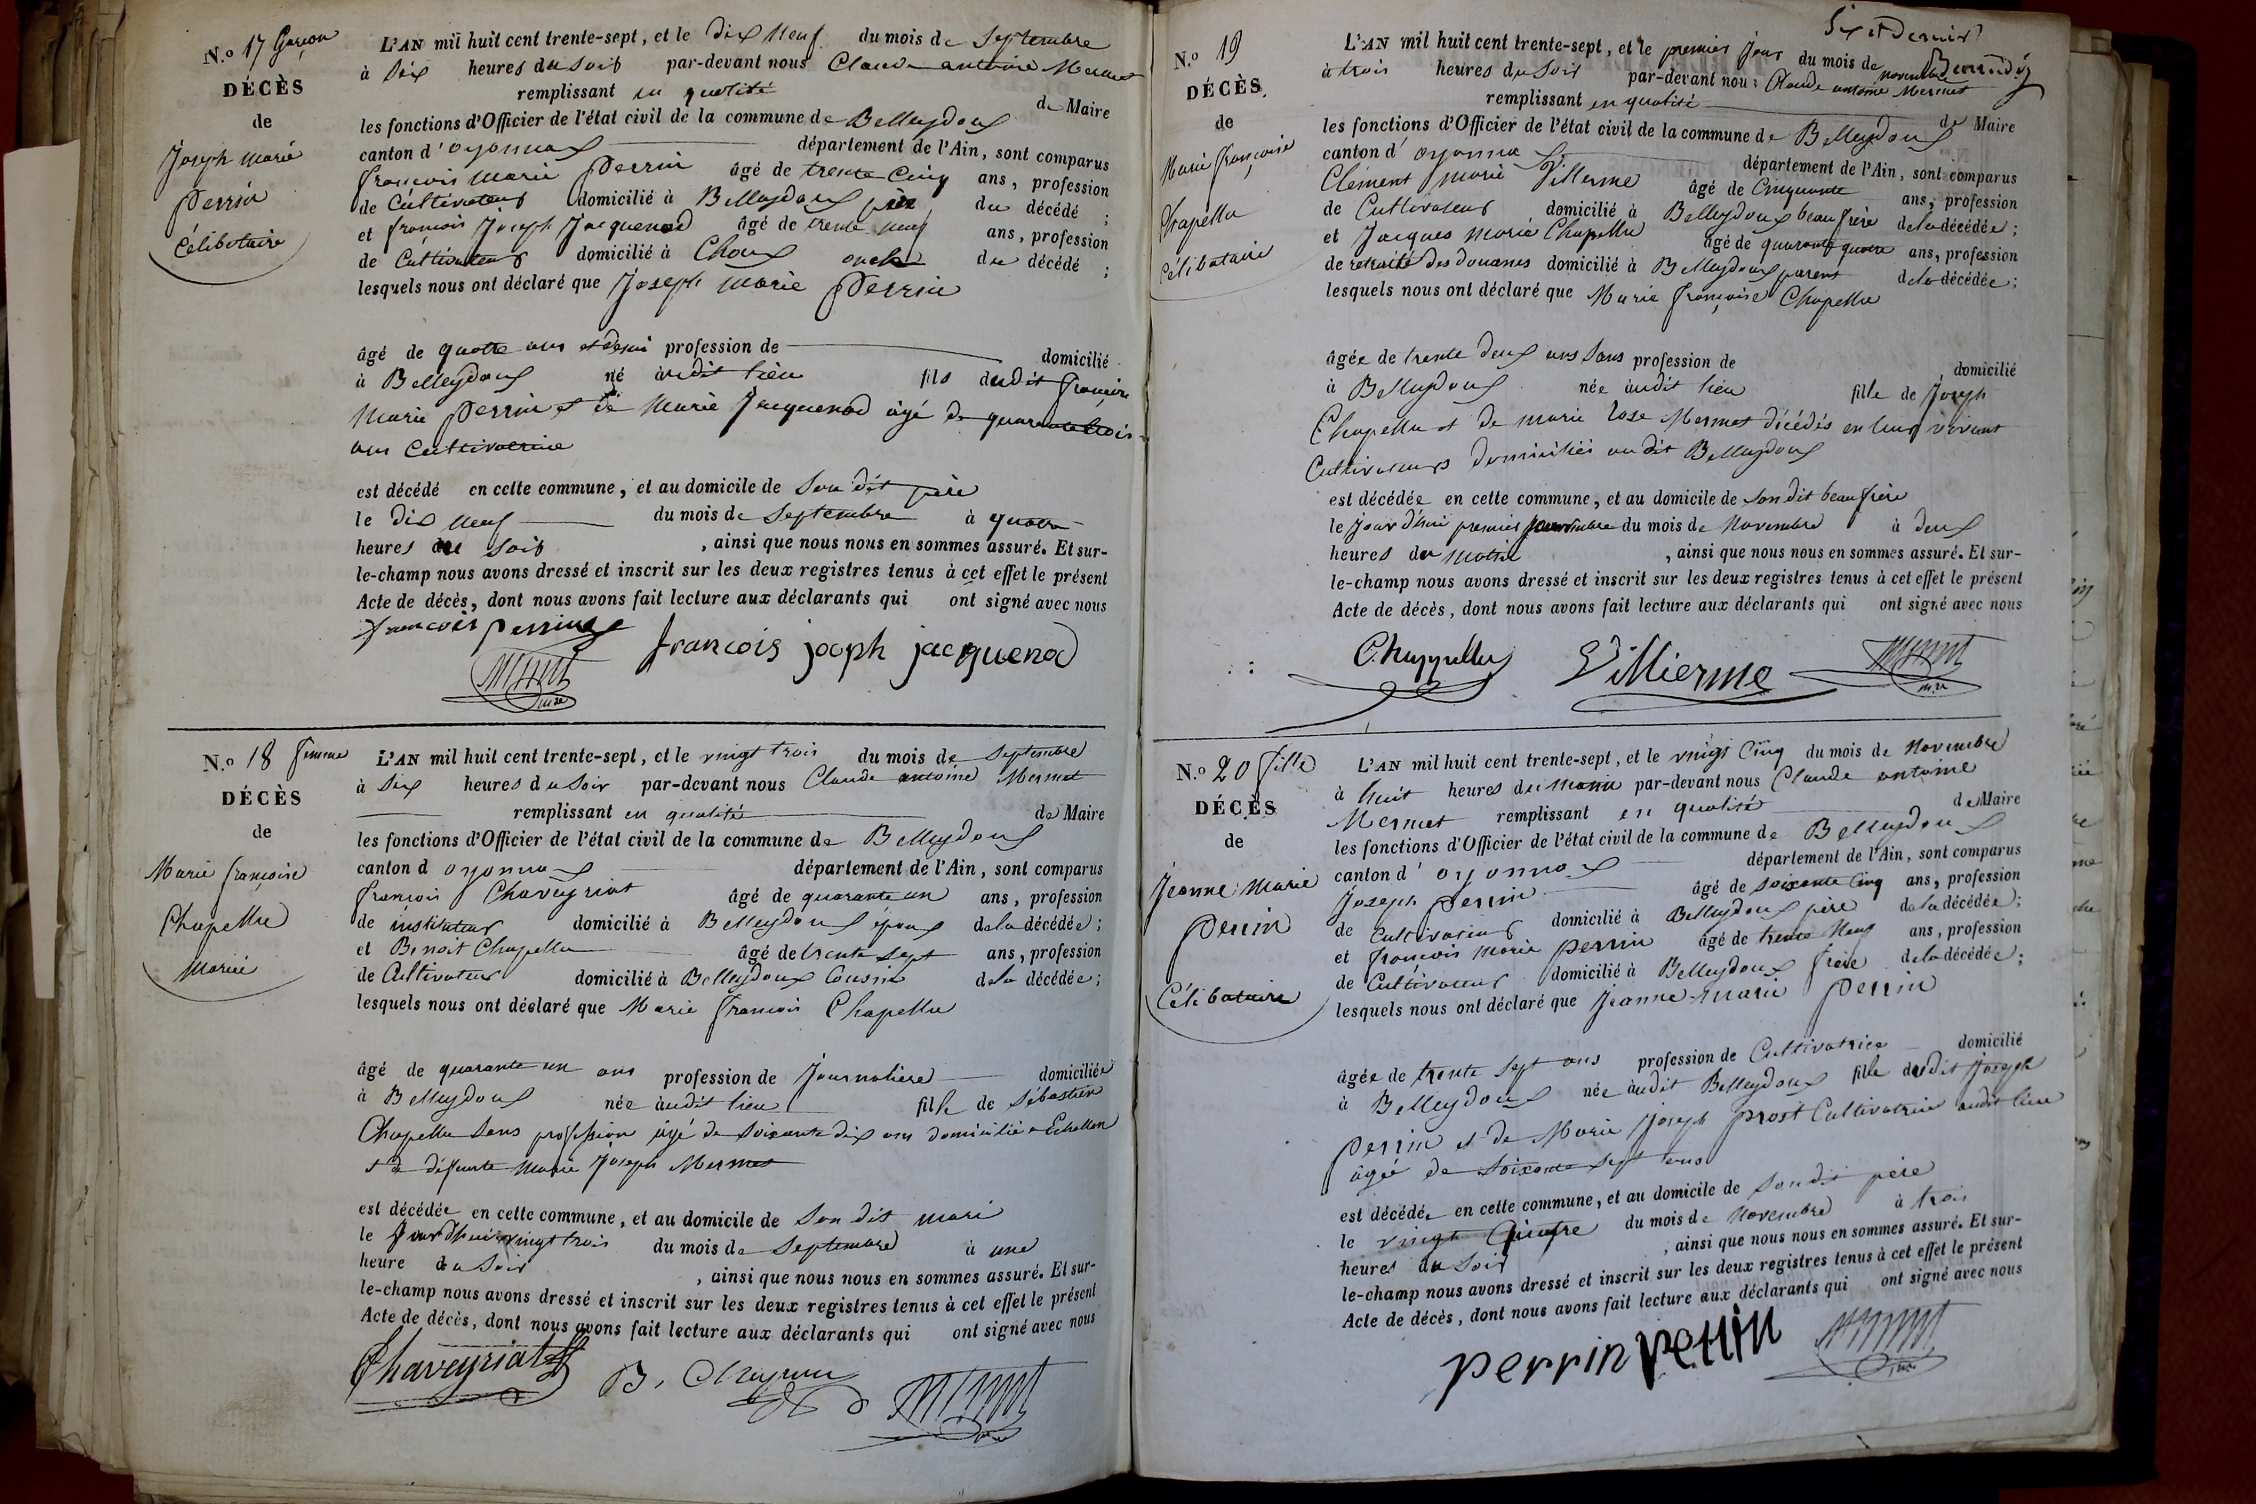 N.o 17 Garçon
DÉCÈS
de
Joseph Marie
Perrin
Célibataire
L'AN mil huit cent trente-sept, et le dix Neuf du mois de Septembre
à Six heures du Soir par-devant nous Claude antoine Mermet
remplissant en qualité de Maire
les fonctions d'Officier de l'état civil de la commune de Belleydoux
canton d'oyonnax département de l'Ain, sont comparus
françois Marie Perrin âgé de trente Cinq ans, profession
de Cultivateur domicilié à Belleydoux père du décédé ;
et françois Joseph Jacquenod âgé de trente neuf ans, profession
de Cultivateur domicilié à Choux oncle du décédé ;
lesquels nous ont déclaré que Joseph Marie Perrin
âgé de quatre ans et demi profession de domicilié
à Belleydoux né audit lieu fils dudit françois
Marie Perrin et de Marie Jacquenod âgé de quarante trois
ans Cultivatrice
est décédé en cette commune, et au domicile de Son dit père
le dix Neuf du mois de Septembre à quatre
heures du Soir , ainsi que nous nous en sommes assuré. Et sur-
le-champ nous avons dressé et inscrit sur les deux registres tenus à cet effet le présent
Acte de décès, dont nous avons fait lecture aux déclarants qui ont signé avec nous
francois perrin
francois joseph jacquenod
Mermet
N.o 18 femme
DÉCÈS
de
Marie françoise
Chapellu
Mariée
L'AN mil huit cent trente-sept, et le vingt trois du mois de Septembre
à Six heures du Soir par-devant nous Claude antoine Mermet
remplissant en qualité de Maire
les fonctions d'Officier de l'état civil de la commune de Belleydoux
canton d oyonnax département de l'Ain, sont comparus
françois Chaveyriat âgé de quarante un ans, profession
de instituteur domicilié à Belleydoux époux de la décédée ;
et Benoit Chapellu âgé de trente Sept ans, profession
de Cultivateur domicilié à Belleydoux Cousin de la décédée ;
lesquels nous ont déclaré que Marie françois Chapellu
âgé de quarante un ans profession de Journaliere domiciliée
à Belleydoux née audit lieu fille de Sébastien
Chapellu Sans profession âgé de Soixante dix ans domicilié a Echallon
et de défunte Marie Joseph Mermet
est décédée en cette commune, et au domicile de Son dit mari
le Jour d'hui vingt trois du mois de Septembre à une
heure du Soir , ainsi que nous nous en sommes assuré. Et sur-
le-champ nous avons dressé et inscrit sur les deux registres tenus à cet effet le présent
Acte de décès, dont nous avons fait lecture aux déclarants qui ont signé avec nous
Chaveyriat
B.
Mermet
Six et Dernier
N.o 19
DÉCÈS
de
Marie françoise
Chapellu
Célibataire
L'AN mil huit cent trente-sept, et le premier jour du mois de novembre
à trois heures du Soir par-devant nous Claude antoine Mermet
remplissant en qualité de Maire
les fonctions d'Officier de l'état civil de la commune de Belleydoux
canton d'oyonnax département de l'Ain, sont comparus
Clément Marie Villerme âgé de Cinquante ans, profession
de Cultivateur domicilié à Belleydoux beau frère de la décédée ;
et Jacques Marie Chapellu âgé de quarante quatre ans, profession
de retraité des douanes domicilié à Belleydoux parent de la décédée ;
lesquels nous ont déclaré que Marie françoise Chapellu
âgée de trente deux ans Sans profession de domicilié
à Belleydoux née audit lieu fille de Joseph
Chapellu et de marie Rose Mermet décédés en leur vivant
Cultivateurs domiciliés audit Belleydoux
est décédée en cette commune, et au domicile de Son dit beau frère
le Jour d'hui premier du mois de Novembre à deux
heures du Matin , ainsi que nous nous en sommes assuré. Et sur-
le-champ nous avons dressé et inscrit sur les deux registres tenus à cet effet le présent
Acte de décès, dont nous avons fait lecture aux déclarants qui ont signé avec nous
Chappellu
Villierme
Mermet
N.o 20 fille
DÉCÈS
de
Jeanne Marie
Perrin
Célibataire
L'AN mil huit cent trente-sept, et le vingt Cinq du mois de Novembre
à huit heures du Matin par-devant nous Claude antoine
Mermet remplissant en qualité de Maire
les fonctions d'Officier de l'état civil de la commune de Belleydoux
canton d'oyonnax département de l'Ain, sont comparus
Joseph Perrin âgé de Soixante Cinq ans, profession
de Cultivateur domicilié à Belleydoux père de la décédée ;
et françois Marie Perrin âgé de trente Neuf ans, profession
de Cultivateur domicilié à Belleydoux frère de la décédée ;
lesquels nous ont déclaré que Jeanne-Marie Perrin
âgée de trente Sept ans profession de Cultivatrice domicilié
à Belleydoux née audit Belleydoux fille dudit Joseph
Perrin et de Marie Joseph Prost Cultivatrice audit lieu
âgé de Soixante Sept ans
est décédée en cette commune, et au domicile de Son dit père
le vingt Quatre du mois de Novembre à trois
heures du Soir , ainsi que nous nous en sommes assuré. Et sur-
le-champ nous avons dressé et inscrit sur les deux registres tenus à cet effet le présent
Acte de décès, dont nous avons fait lecture aux déclarants qui ont signé avec nous
perrin perrin
Mermet